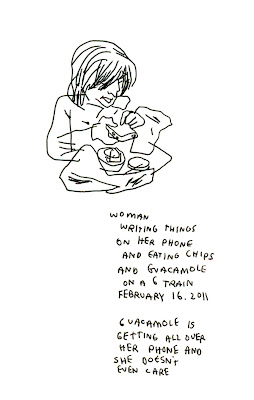 WOMAN
WRITING THINGS
ON HER PHONE
AND EATING CHIPS
AND GUACAMOLE
ON A 6 TRAIN
FEBRUARY 16, 2011
GUACAMOLE IS
GETTING ALL OVER
HER PHONE AND
SHE DOESN'T
EVEN CARE